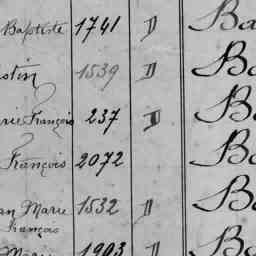 Baptiste 1741 D Ba
stin 1539 D Ba
rie François 237 D Ba
François 2072 Ba
an Marie 1532 D Ba
François
Marie 1903 D Ba